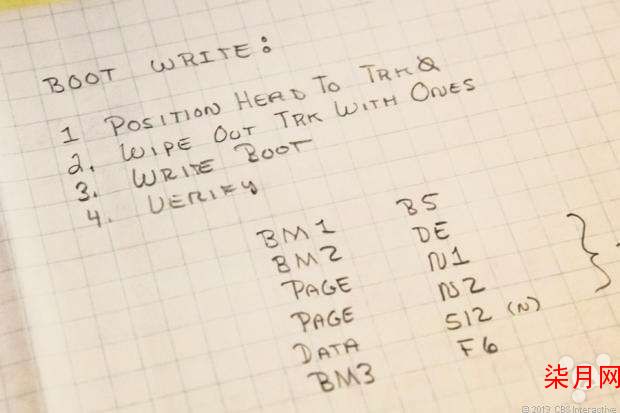 BOOT WRITE:
1 POSITION HEAD TO TRK0
2. WIPE OUT TRK WITH ONES
3. WRITE BOOT
4. VERIFY
BM1 B5
BM2 DE
PAGE N1
PAGE N2
DATA 512 (N)
BM3 F6
柒月网
© 2013 CBS Interactive